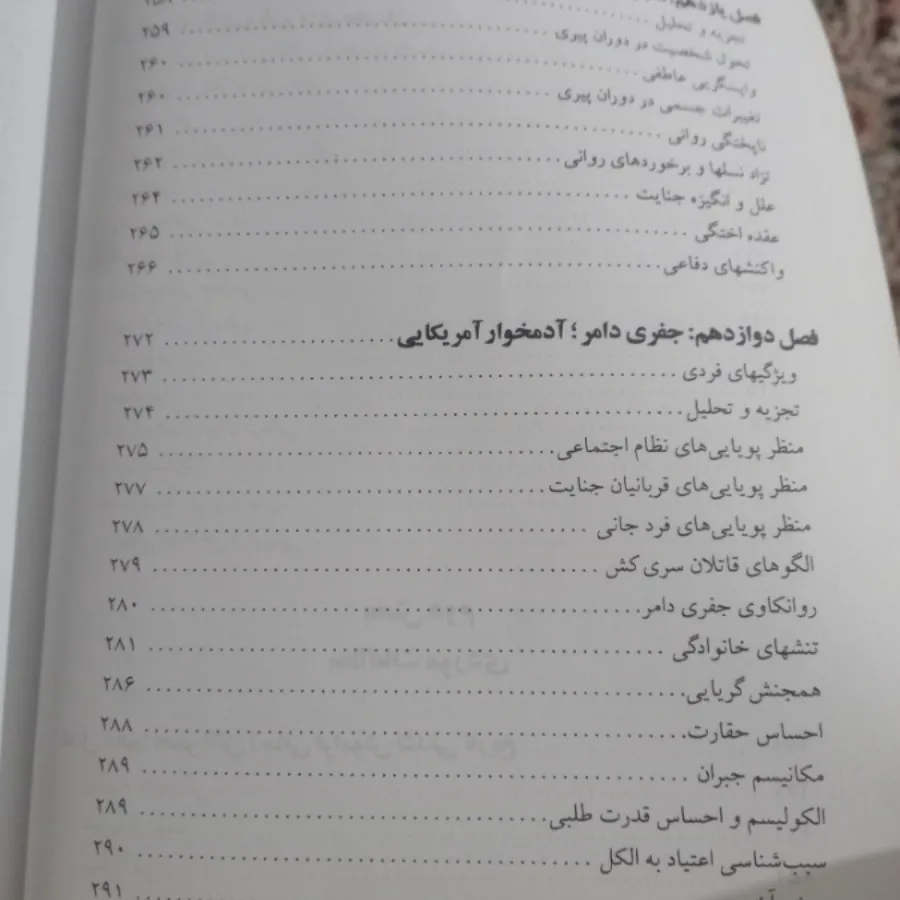 فصل یازدهم:
تجزیه و تحلیل ۲۵۸
تحول شخصیت در دوران پیری ۲۵۹
واپسگریی عاطفی ۲۶۰
تغییرات جسمی در دوران پیری ۲۶۰
ناپختگی روانی ۲۶۱
نژاد نسلها و برخوردهای روانی ۲۶۲
علل و انگیزه جنایت ۲۶۴
عقده اختگی ۲۶۵
واکنشهای دفاعی ۲۶۶
فصل دوازدهم: جفری دامر؛ آدمخوار آمریکایی ۲۷۲
ویژگیهای فردی ۲۷۳
تجزیه و تحلیل ۲۷۴
منظر پویایی‌های نظام اجتماعی ۲۷۵
منظر پویایی‌های قربانیان جنایت ۲۷۷
منظر پویایی‌های فرد جانی ۲۷۸
الگوهای قاتلان سری کش ۲۷۹
روانکاوی جفری دامر ۲۸۰
تنشهای خانوادگی ۲۸۱
همجنش گریایی ۲۸۶
احساس حقارت ۲۸۸
مکانیسم جبران ۲۸۹
الکولیسم و احساس قدرت طلبی ۲۸۹
سبب‌شناسی اعتیاد به الکل ۲۹۰
۲۹۱